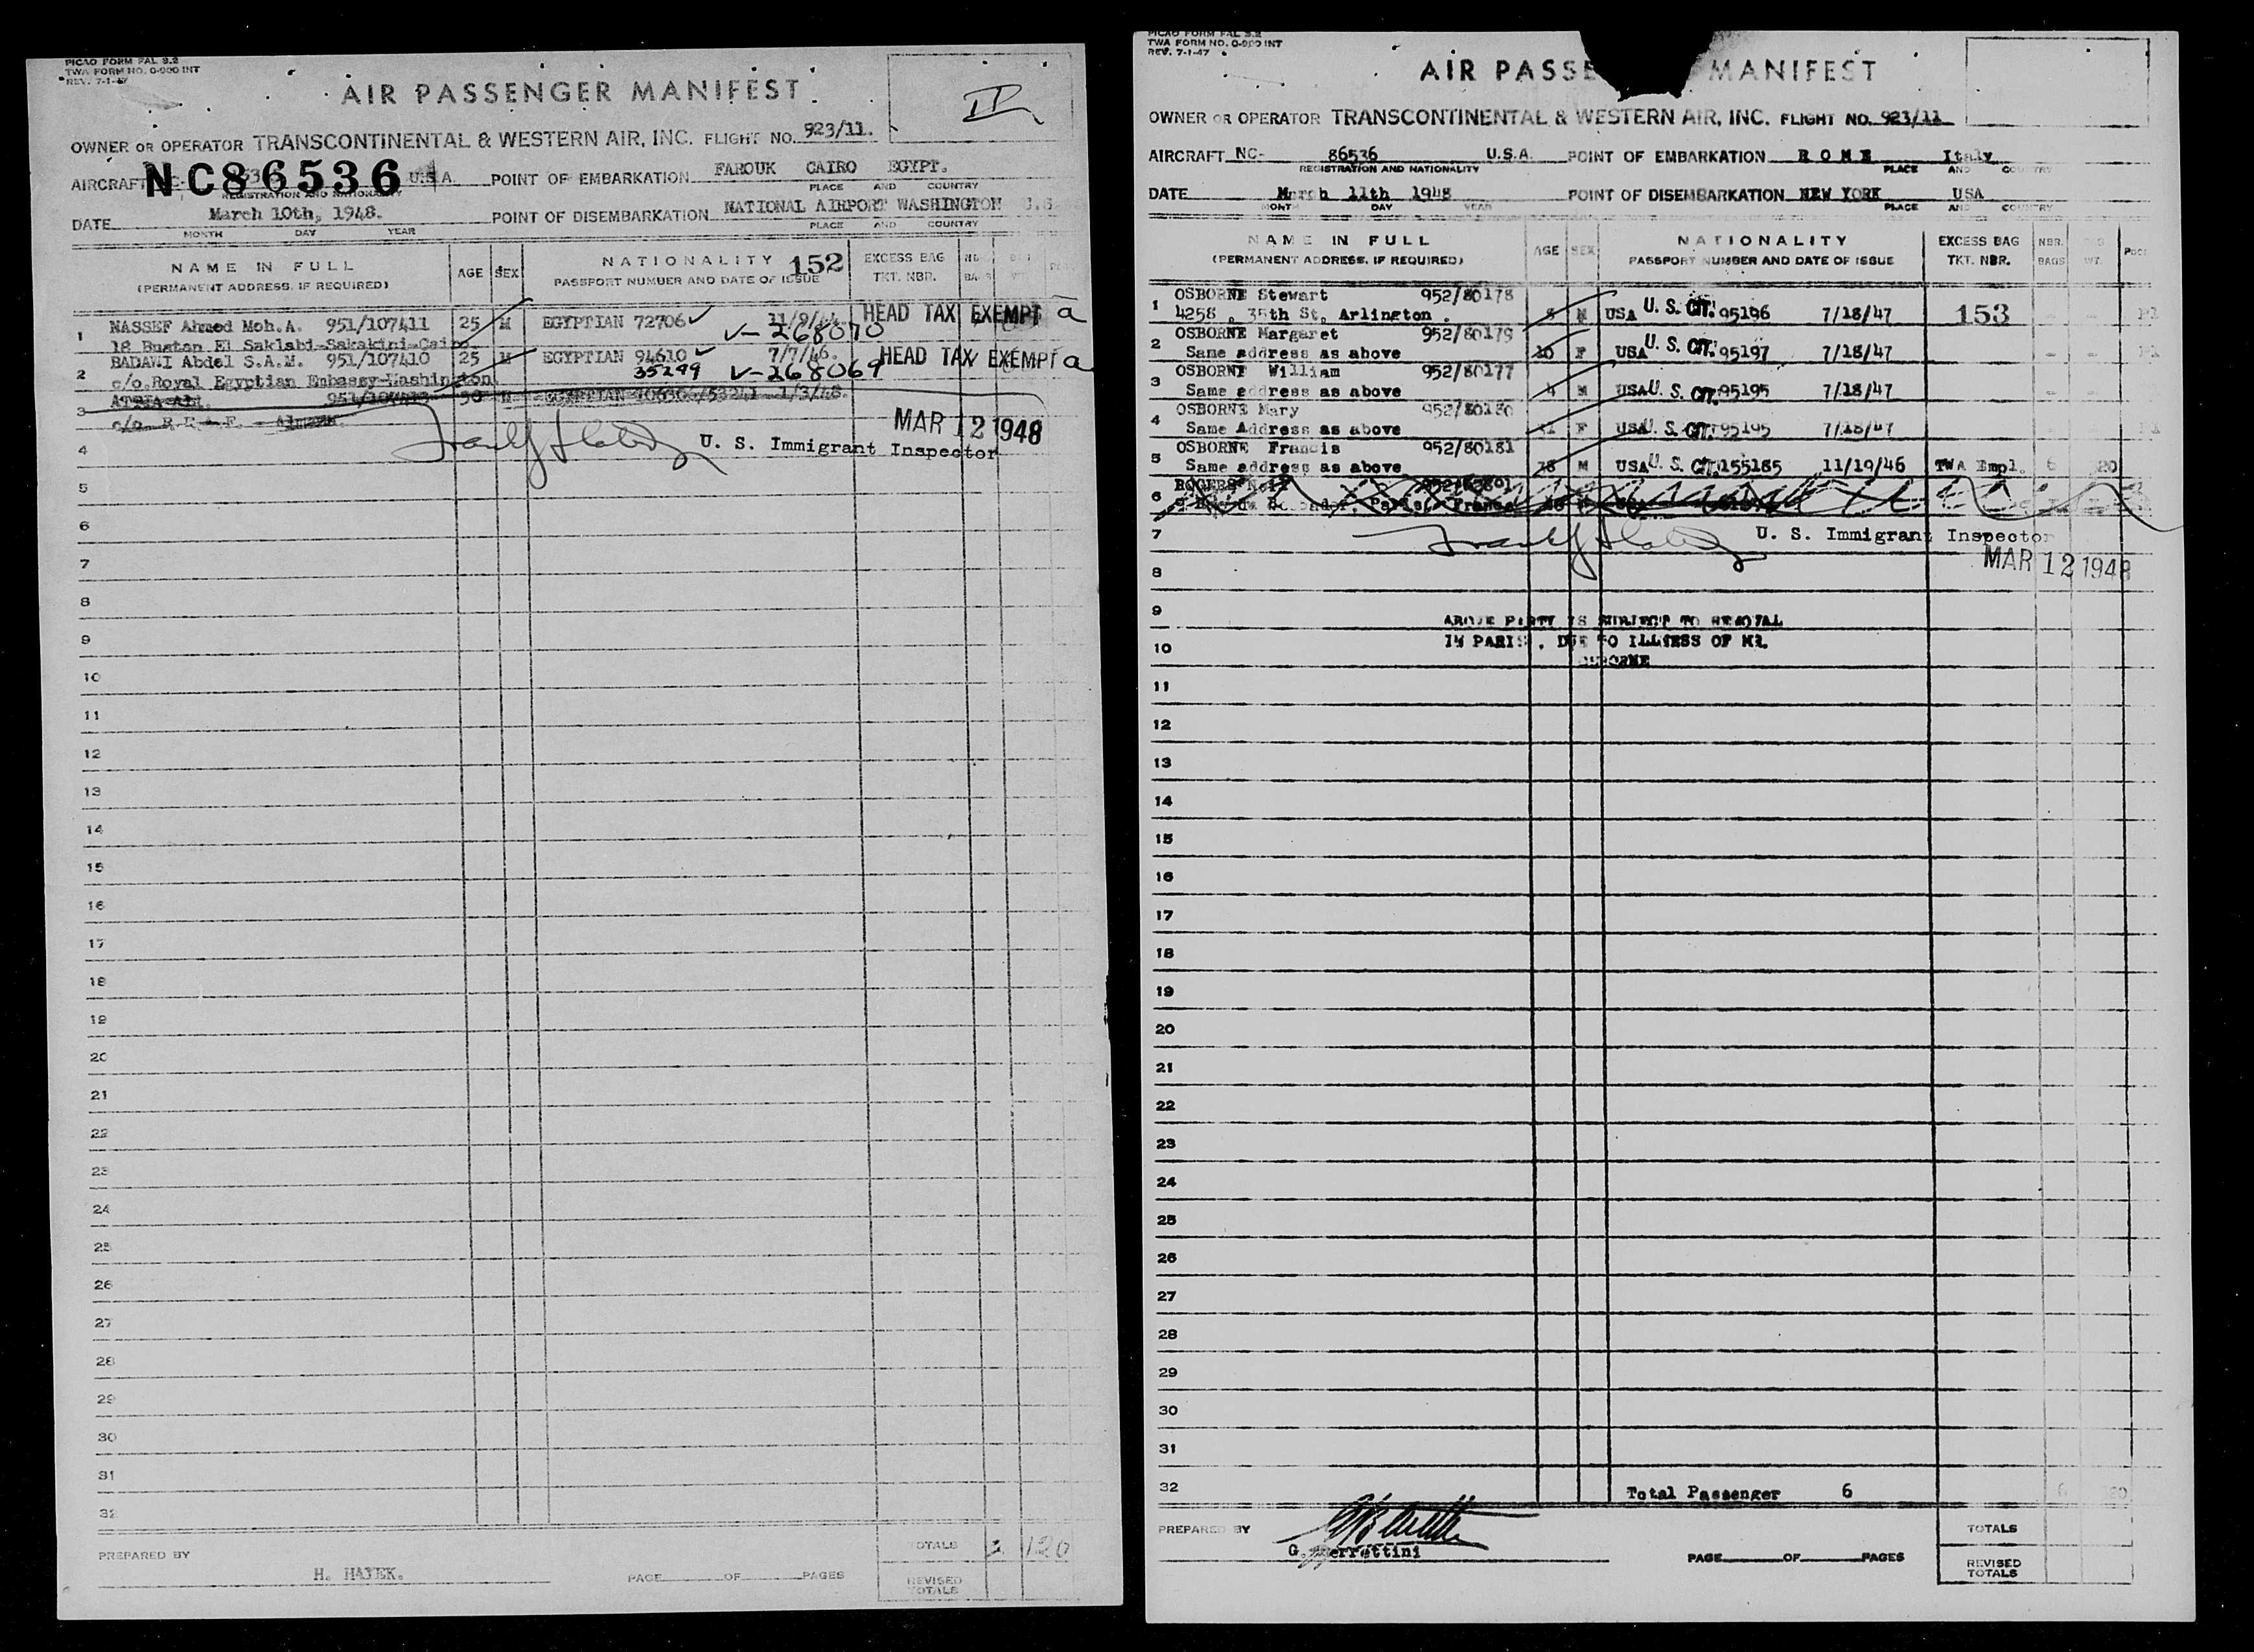 PICAO FORM FAL 3.2
TWA FORM NO. 0-900 INT
REV. 7-1-47
AIR PASSENGER MANIFEST
II
OWNER OR OPERATOR TRANSCONTINENTAL & WESTERN AIR, INC. FLIGHT NO. 923/11.
AIRCRAFT NC86536 U.S.A. POINT OF EMBARKATION FAROUK CAIRO EGYPT.
REGISTRATION AND NATIONALITY PLACE AND COUNTRY
DATE March 10th, 1948. POINT OF DISEMBARKATION NATIONAL AIRPORT WASHINGTON U.S.
MONTH DAY YEAR PLACE AND COUNTRY
NAME IN FULL AGE SEX NATIONALITY 152 EXCESS BAG
(PERMANENT ADDRESS, IF REQUIRED) PASSPORT NUMBER AND DATE OF ISSUE TKT. NBR. BAGS WT.
1 NASSEF Ahmed Moh.A. 951/107411 25 M EGYPTIAN 72706 HEAD TAX EXEMPT a
18 Bustan El Saklabi-Sakakini-Cairo. V-268070
2 BADAWI Abdel S.A.M. 951/107410 25 M EGYPTIAN 94610 7/7/46. HEAD TAX EXEMPT a
c/o.Royal Egyptian Embassy-Washington 35299 V-268069
3 EGYPTIAN 1/3/48.
c/o
MAR 12 1948
4 U. S. Immigrant Inspector
5
6
7
8
9
10
11
12
13
14
15
16
17
18
19
20
21
22
23
24
25
26
27
28
29
30
31
32
PREPARED BY H. HAYEK. PAGE OF PAGES TOTALS 2 120
REVISED TOTALS
PICAO FORM FAL 3.2
TWA FORM NO. 0-900 INT
REV. 7-1-47
AIR PASSE MANIFEST
OWNER OR OPERATOR TRANSCONTINENTAL & WESTERN AIR, INC. FLIGHT NO. 923/11
AIRCRAFT NC- 86536 U.S.A. POINT OF EMBARKATION ROME Italy
REGISTRATION AND NATIONALITY PLACE AND COUNTRY
DATE March 11th 1948 POINT OF DISEMBARKATION NEW YORK USA
MONTH DAY YEAR PLACE AND COUNTRY
NAME IN FULL AGE SEX NATIONALITY EXCESS BAG NBR.
(PERMANENT ADDRESS, IF REQUIRED) PASSPORT NUMBER AND DATE OF ISSUE TKT. NBR. BAGS WT.
1 OSBORNE Stewart 952/80178
4258 , 35th St, Arlington . M USA U. S. CIT. 95196 7/18/47 153
2 OSBORNE Margaret 952/80179
Same address as above F USA U. S. CIT. 95197 7/18/47
3 OSBORNE William 952/80177
Same address as above 4 M USA U. S. CIT. 95195 7/18/47
4 OSBORNE Mary 952/80180
Same Address as above F USA U. S. CIT. 95195 7/18/47
5 OSBORNE Francis 952/80181
Same address as above M USA U. S. CIT. 155185 11/19/46 TWA Empl. 6 20
6 ROGERS
Paris, France
7 U. S. Immigrant Inspector
8 MAR 12 1948
9 ABOVE PARTY IS SUBJECT TO REMOVAL
10 IN PARIS , DUE TO ILLNESS OF MR.
OSBORNE
11
12
13
14
15
16
17
18
19
20
21
22
23
24
25
26
27
28
29
30
31
32 Total Passenger 6
PREPARED BY TOTALS
PAGE OF PAGES
REVISED TOTALS